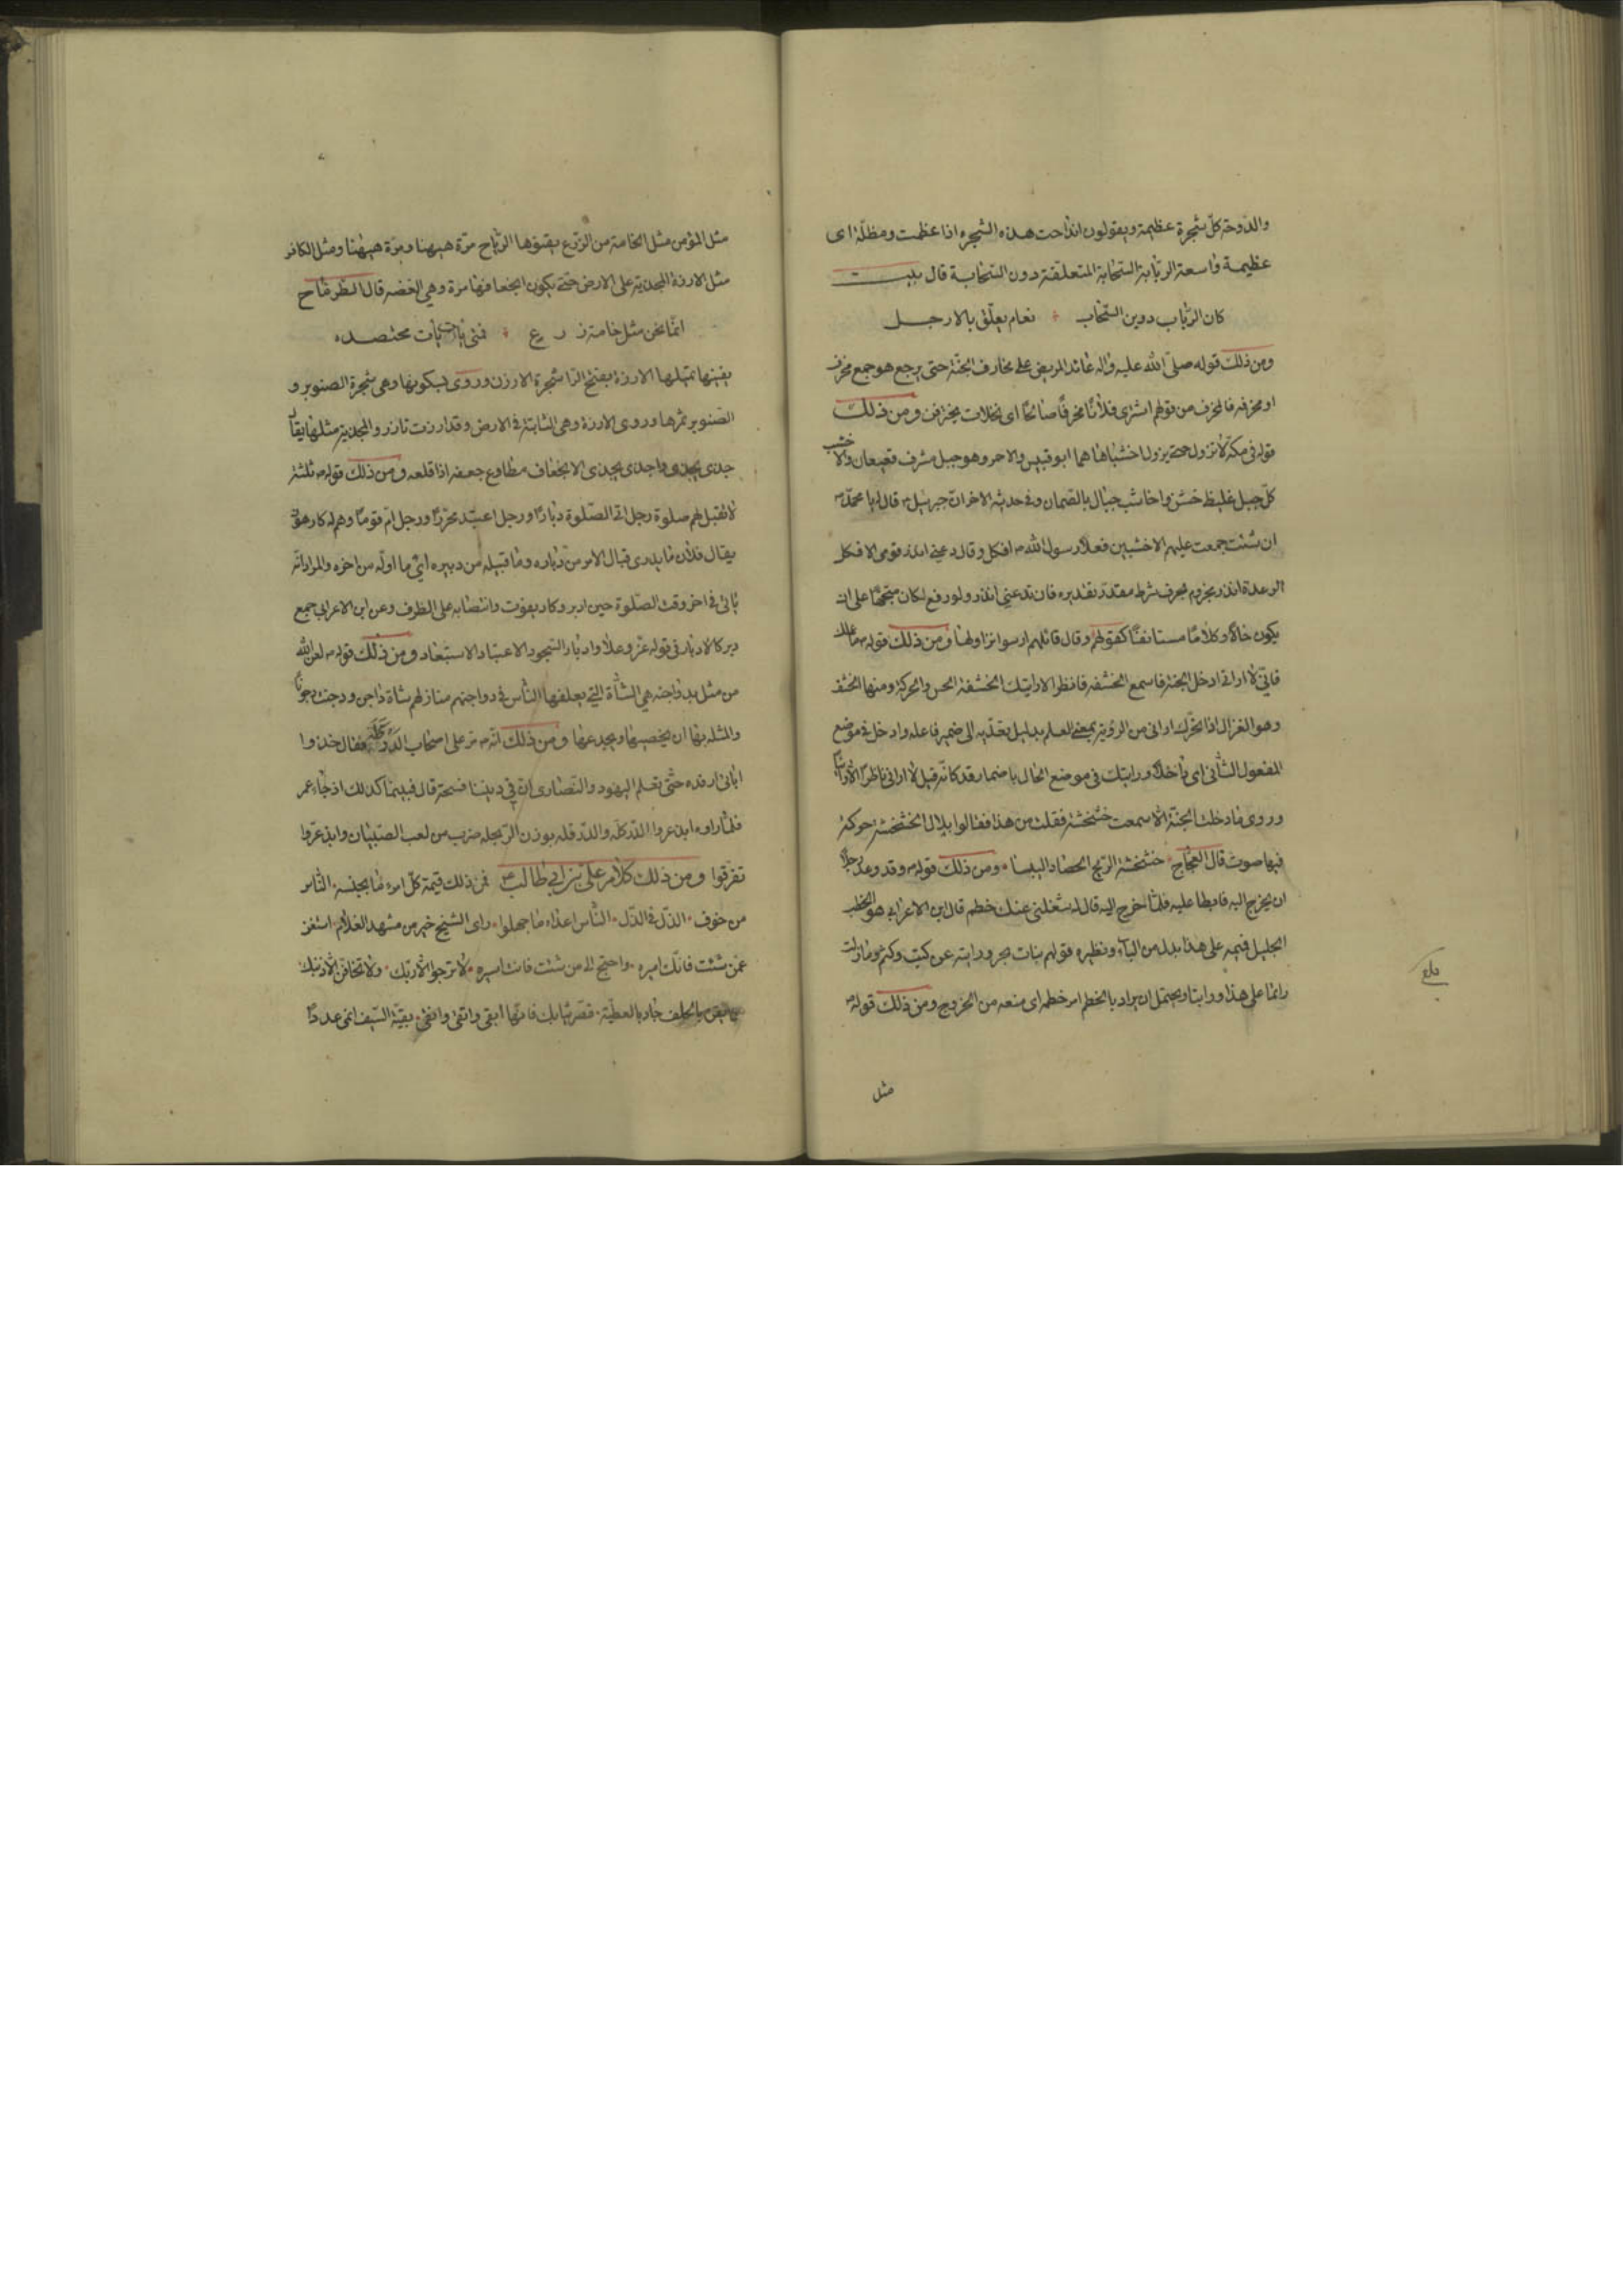 والدّوحة كلّ شجرة عظيمة ويقولون انداحت هذه الشجره اذا عظمت ومظلّة اى
عظيمة واسعة الربابة السّحابة المتعلّقة دون السّحابة قال بيت
كان الرّباب دوين السّحاب نعام يعلّق بالارجل
ومن ذلك قوله صلّى الله عليه واله عائد المريض على مخارف الجنّة حتى يرجع هو جمع مخرف
او مخرفه فالمخرف من قولهم اشترى فلانا مخرفًا صالحًا اى نخلات يخترفن ومن ذلك
قوله فى مكّة لا تزول حتى يزول اخشباها هما ابو قبيس والاحمر وهو جبل مشرف قعيقعان والاخشب
كلّ جبل غليظ خشن واخاشب جبال بالصّمان وفى حديثه الاخر انّ جبرئيل قال له يا محمّد
ان شئت جمعت عليهم الاخشبين فعلا رسول الله افكل وقال دعنى انذر قومى الافكل
الرعدة انذر مجزوم بحرف شرط مقدّر تقديره فان تدعنى انذر ولو رفع لكان متّجهًا على ان
يكون حالًا وكلامًا مستانفًا كقولهم وقال قائلهم ارسوا نزاولها ومن ذلك قوله
فانّى لا ارانى ادخل الجنة فاسمع الخشفه فانظر الا رايتك الخشفة الحس والحركة ومنها الخشف
وهو الغزال اذا تحرّك ارانى من الرؤية بمعنى العلم بدليل تعدّيه الى ضمير فاعله وادخل فى موضع
المفعول الثّانى اى داخلًا ورايتك فى موضع الحال باضمار قد كانّه قيل لا ارانى ناظرًا الّا
وروى ما دخلت الجنّة الّا سمعت خشخشة فقلت من هذا فقالوا بلال الخشخشة حركة
فيها صوت قال العجّاج خشخشة الريح الحصاد اليبسا ومن ذلك قوله وقد وعد رجلًا
ان يخرج اليه فابطا عليه فلمّا خرج اليه قال له شغلنى عنك خطم قال ابن الاعرابى هو الخطب
الجليل فيمه على هذا بدل من الباء ونظيره قولهم بنات مخر ورايته عن كثب وكثم وما زلت
راتما على هذا وراتبا ويحتمل ان يراد بالخطم امر خطمه اى منعه من الخروج ومن ذلك قوله
مثل
مثل المؤمن مثل الخامة من الزّرع يفيؤها الرّياح مرّة ههنا ومرّة ههنا ومثل الكافر
مثل الارزة المجذية على الارض حتّى يكون انجعافها مرة وهى الغضه قال الطرمّاح
انّما نحن مثل خامة زرع فمتى يات يات محتصده
يفيئها يميلها الارزة بفتح الرّا شجرة الارزن وروى بسكونها وهى شجرة الصنوبر و
الصّنوبر ثمرها وروى الارزة وهى الثّابتة فى الارض وقد ارزت تارز والمجذية مثلها يقال
جذى يجذو واجذى يجذى الانجعاف مطاوع جعفه اذا قلعه ومن ذلك قوله ثلثة
لا تقبل لهم صلوة رجل اتى الصّلوة دبارًا ورجل اعتبد محرّرًا ورجل امّ قومًا وهم له كارهون
يقال فلان ما يدرى قبال الامر من دباره وما قبيله من دبيره اى ما اوله من اخره والمراد انّه
ياتى فى اخر وقت الصّلوة حين ادبر وكاد يفوت وانتصابه على الظرف وعن ابن الاعرابى جمع
دبر كالادبار فى قوله عزّ وعلا وادبار السّجود الاعتباد الاستبعاد ومن ذلك قوله لعن الله
من مثل بدواجنه هى الشّاة الّتى يعلفها النّاس فى دواجنهم منازلهم شاة داجن ودجنت دجونًا
والمثله بها ان يخصيها ويجدعها ومن ذلك انّه مرّ على اصحاب الدّركله فقال خذوا
يا بنى ارفده حتّى تعلم اليهود والنّصارى انّ فى ديننا فسحة قال فبينما كذلك اذ جاء عمر
فلمّا راوه ابذعروا الدّركله والدّرقله بوزن الرّبحله ضرب من لعب الصّبيان وابذعرّوا
تفرّقوا ومن ذلك كلام علىّ بن ابى طالب فمن ذلك قيمة كلّ امرء ما يحسنه النّاس
من خوف الذّل فى الذّل النّاس اعداء ما جهلوا راى الشيخ خير من مشهد الغلام استغن
عمّن شئت فانّك اميره واحتج الى من شئت فانت اسيره لا ترجوا الّا ربّك ولا تخافنّ الّا ذنبك
من ايقن بالخلف جاد بالعطيّة قصّر ثيابك فانّها ابقى واتقى وانقى بقيّة السّيف انمى عددًا